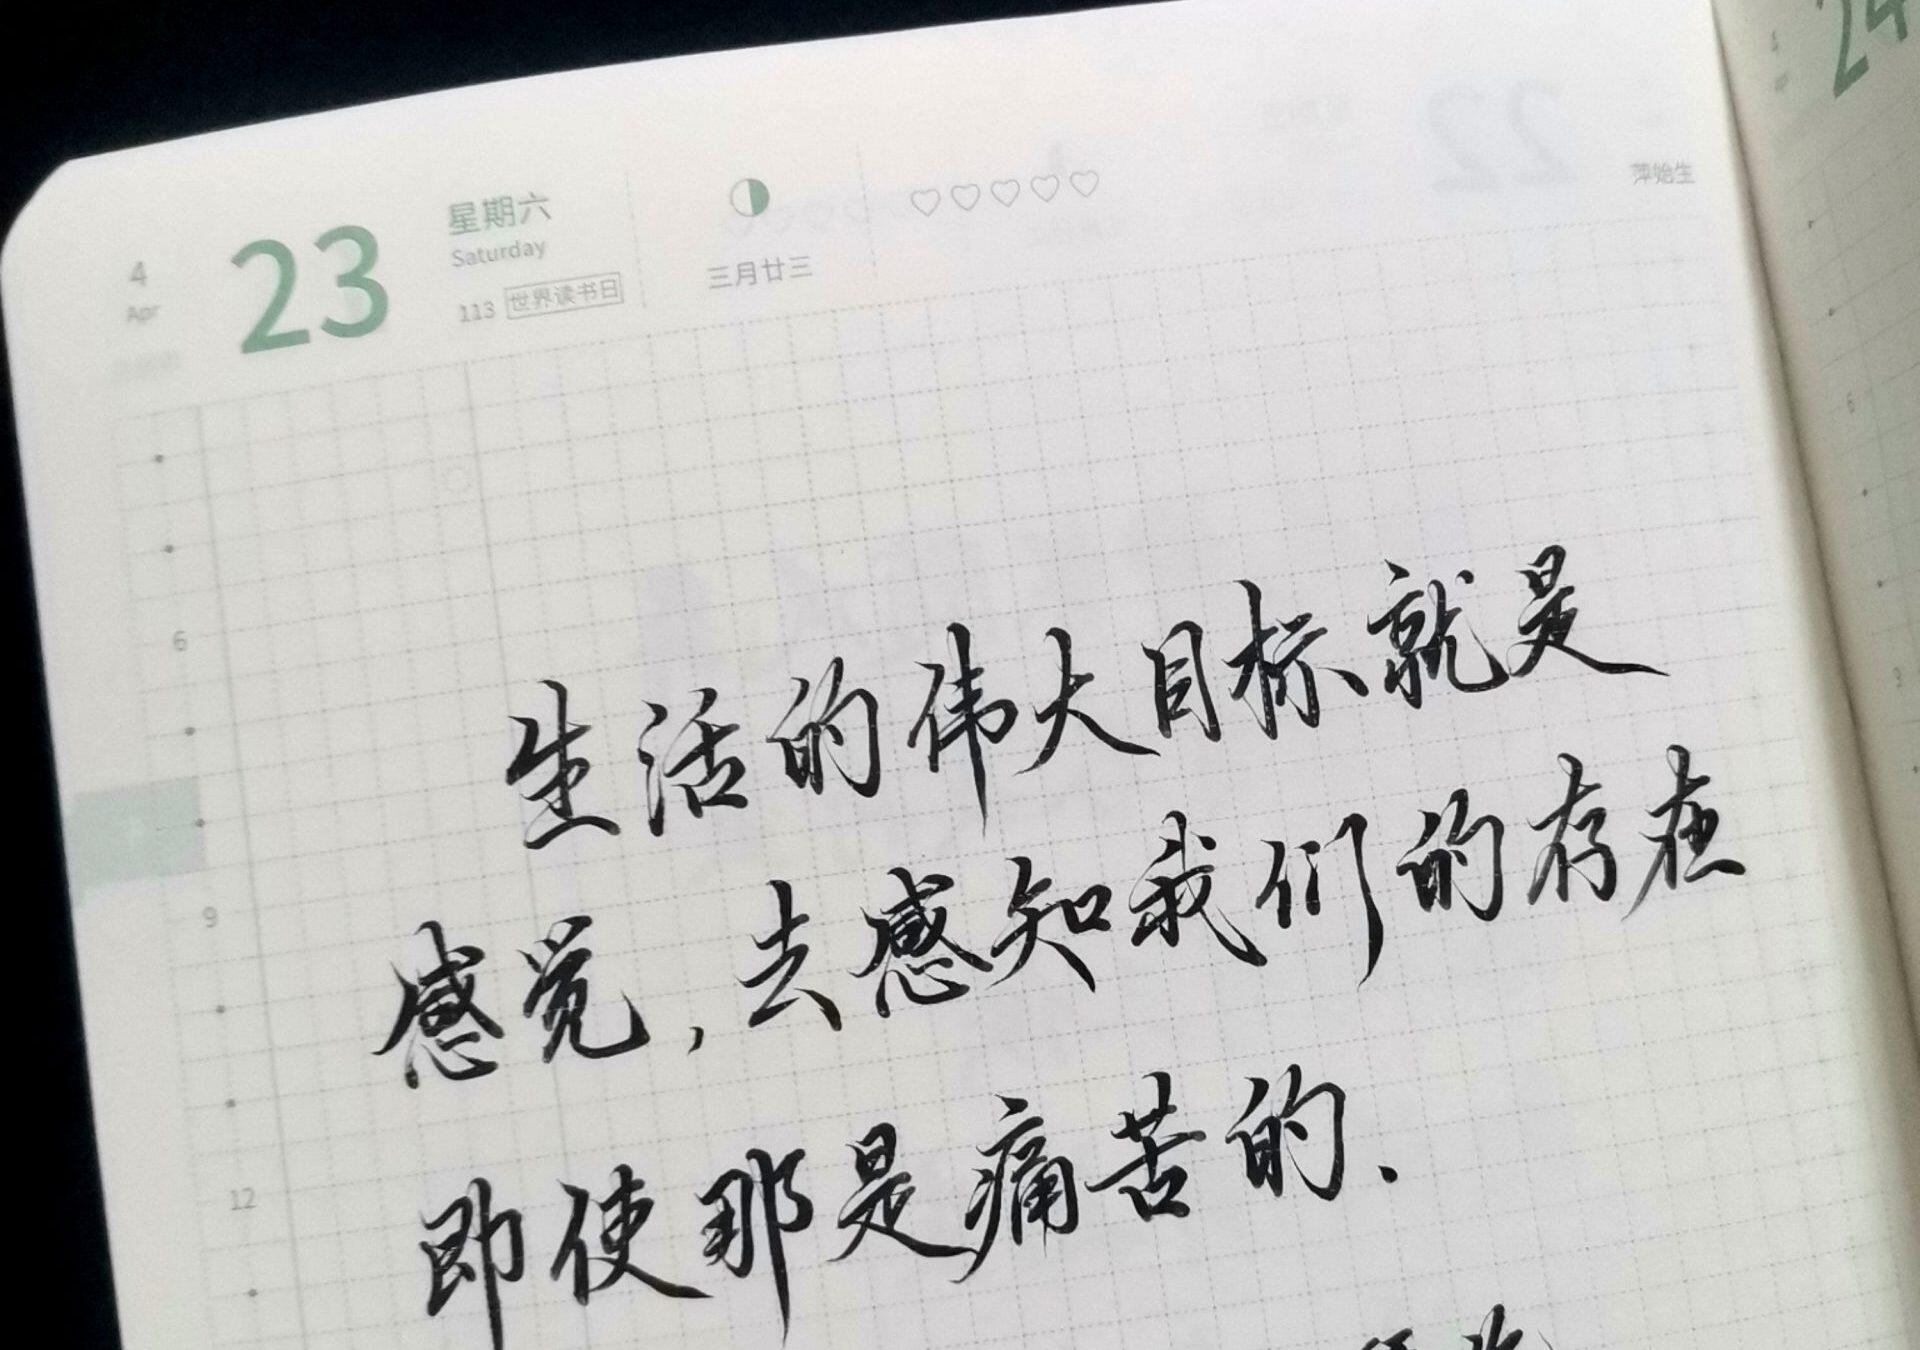 4
Apr
23
星期六
Saturday
113 世界读书日
三月廿三
萍始生
24
6
9
12
6
9
生活的伟大目标就是
感觉,去感知我们的存在
即使那是痛苦的.